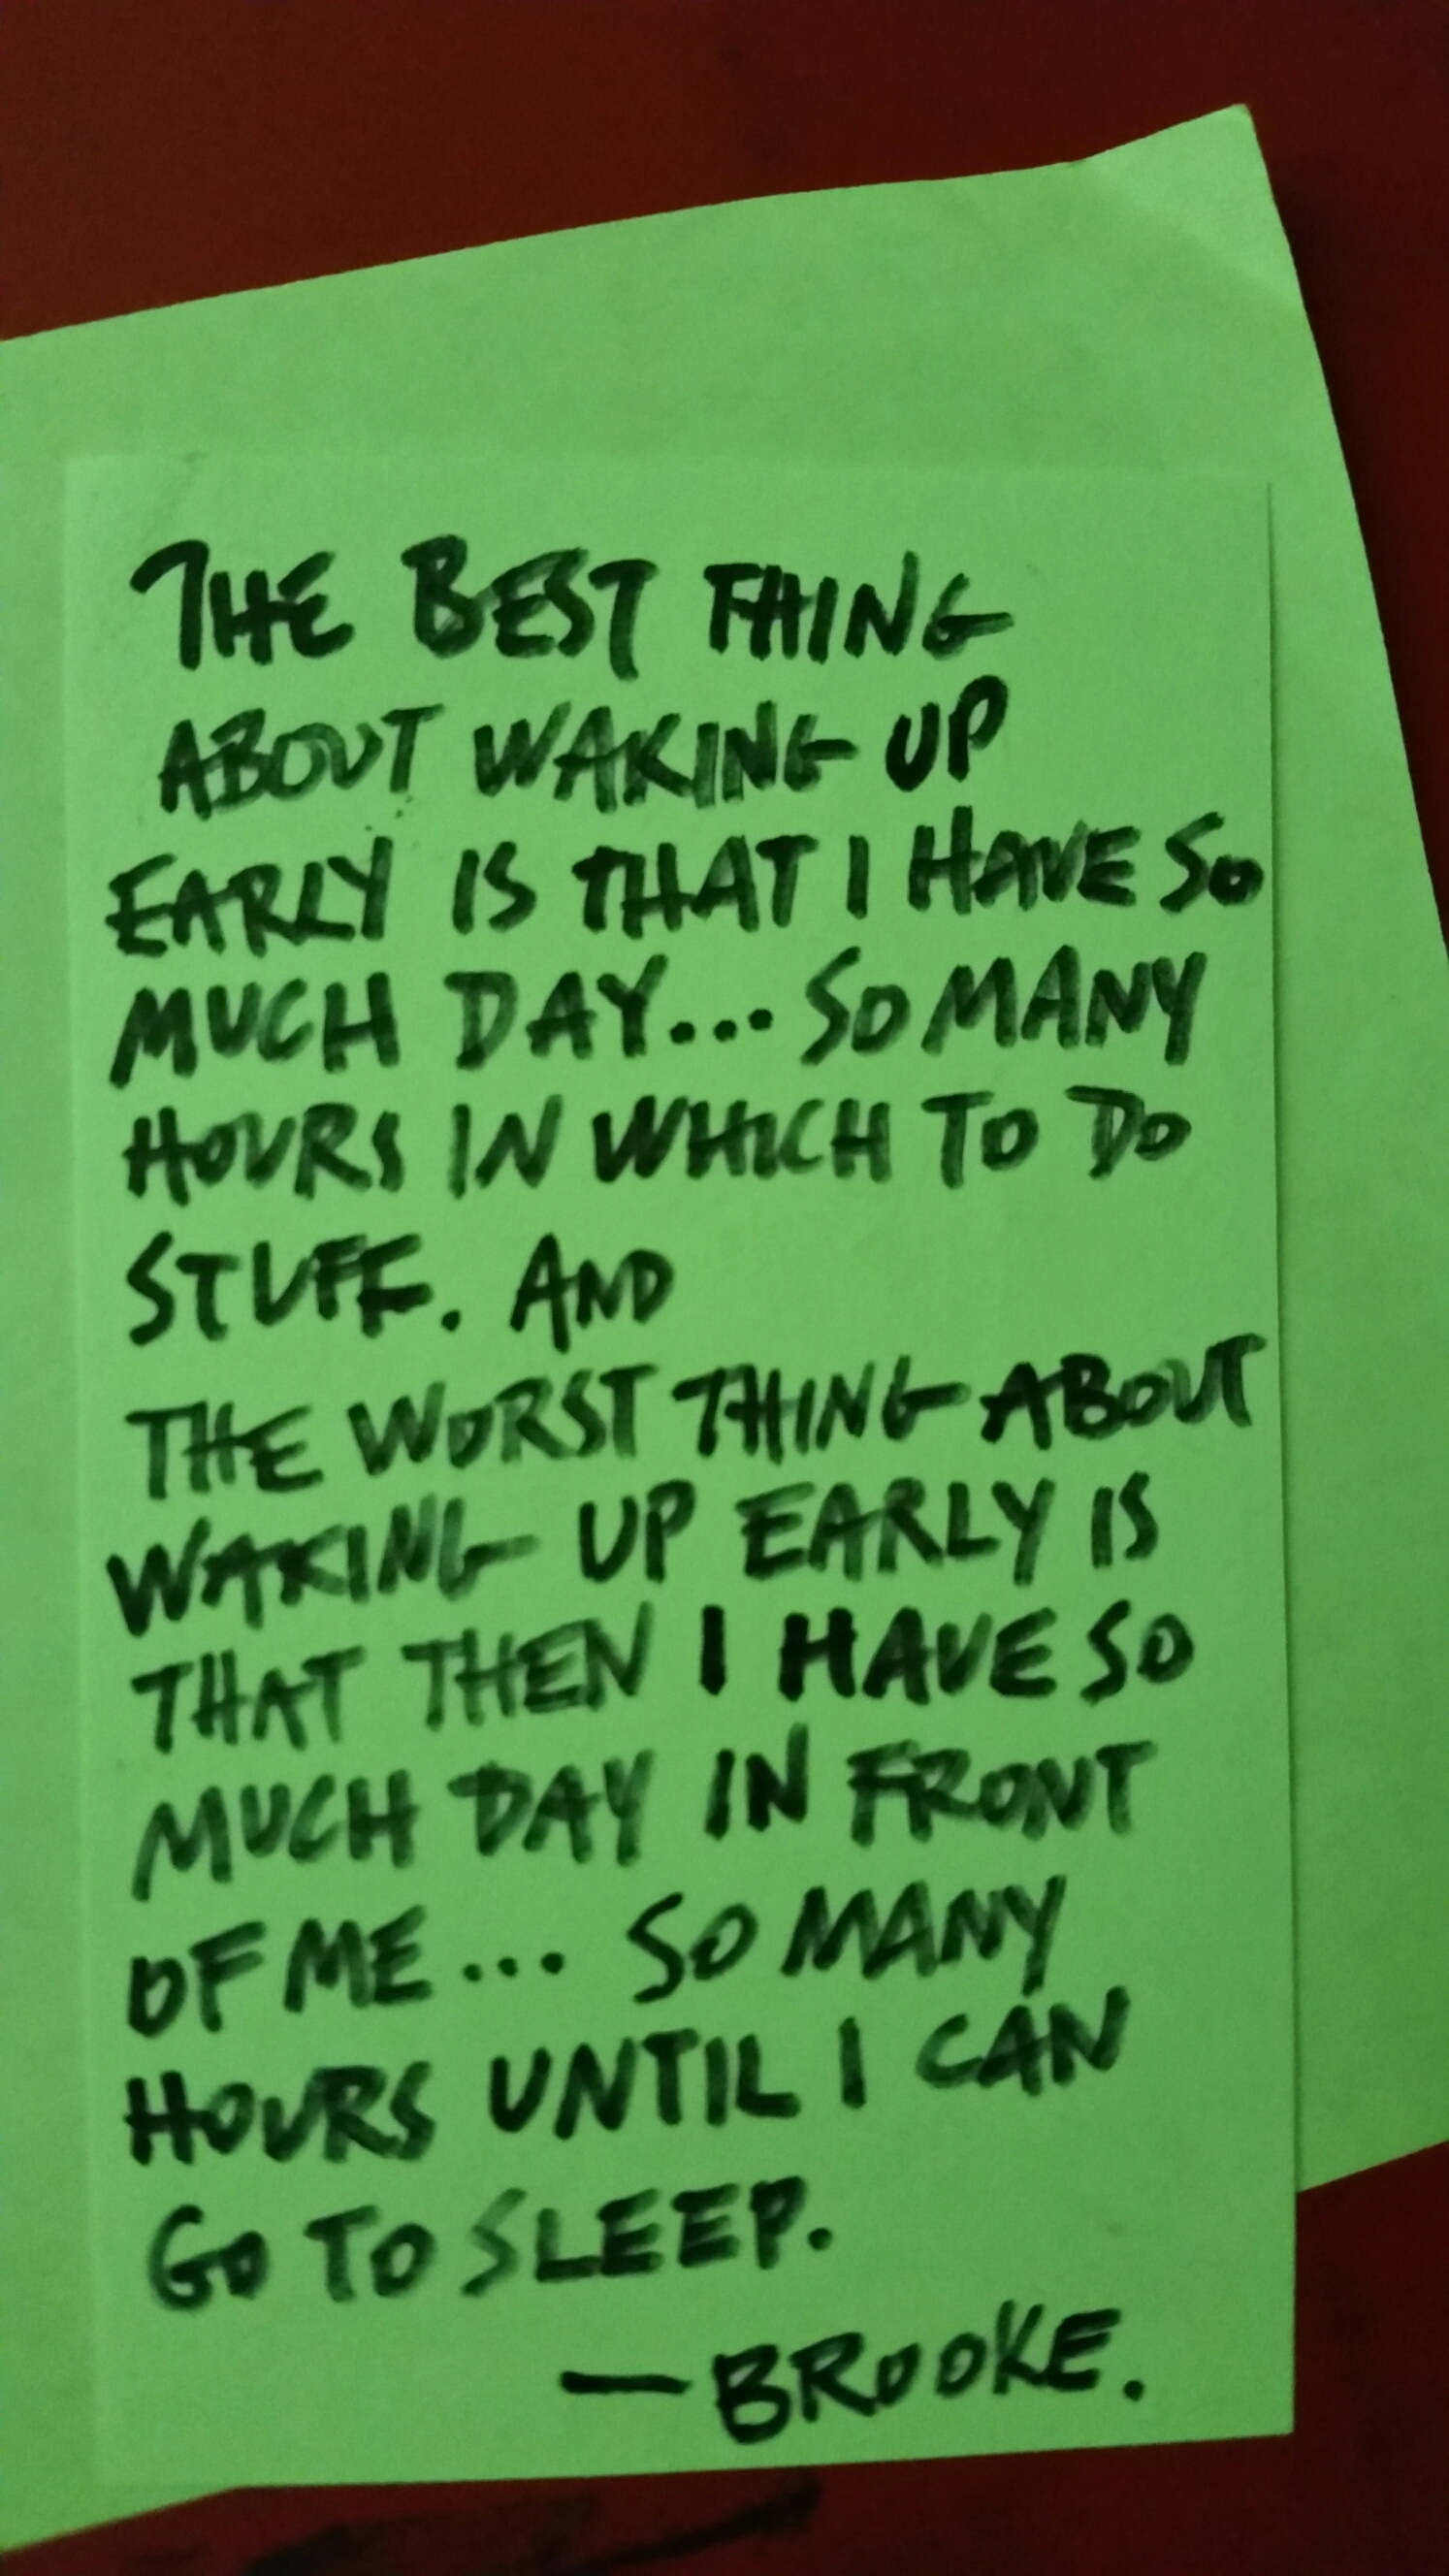 THE BEST THING
ABOUT WAKING UP
EARLY IS THAT I HAVE SO
MUCH DAY... SO MANY
HOURS IN WHICH TO DO
STUFF. AND
THE WORST THING ABOUT
WAKING UP EARLY IS
THAT THEN I HAVE SO
MUCH DAY IN FRONT
OF ME... SO MANY
HOURS UNTIL I CAN
GO TO SLEEP.
— BROOKE.